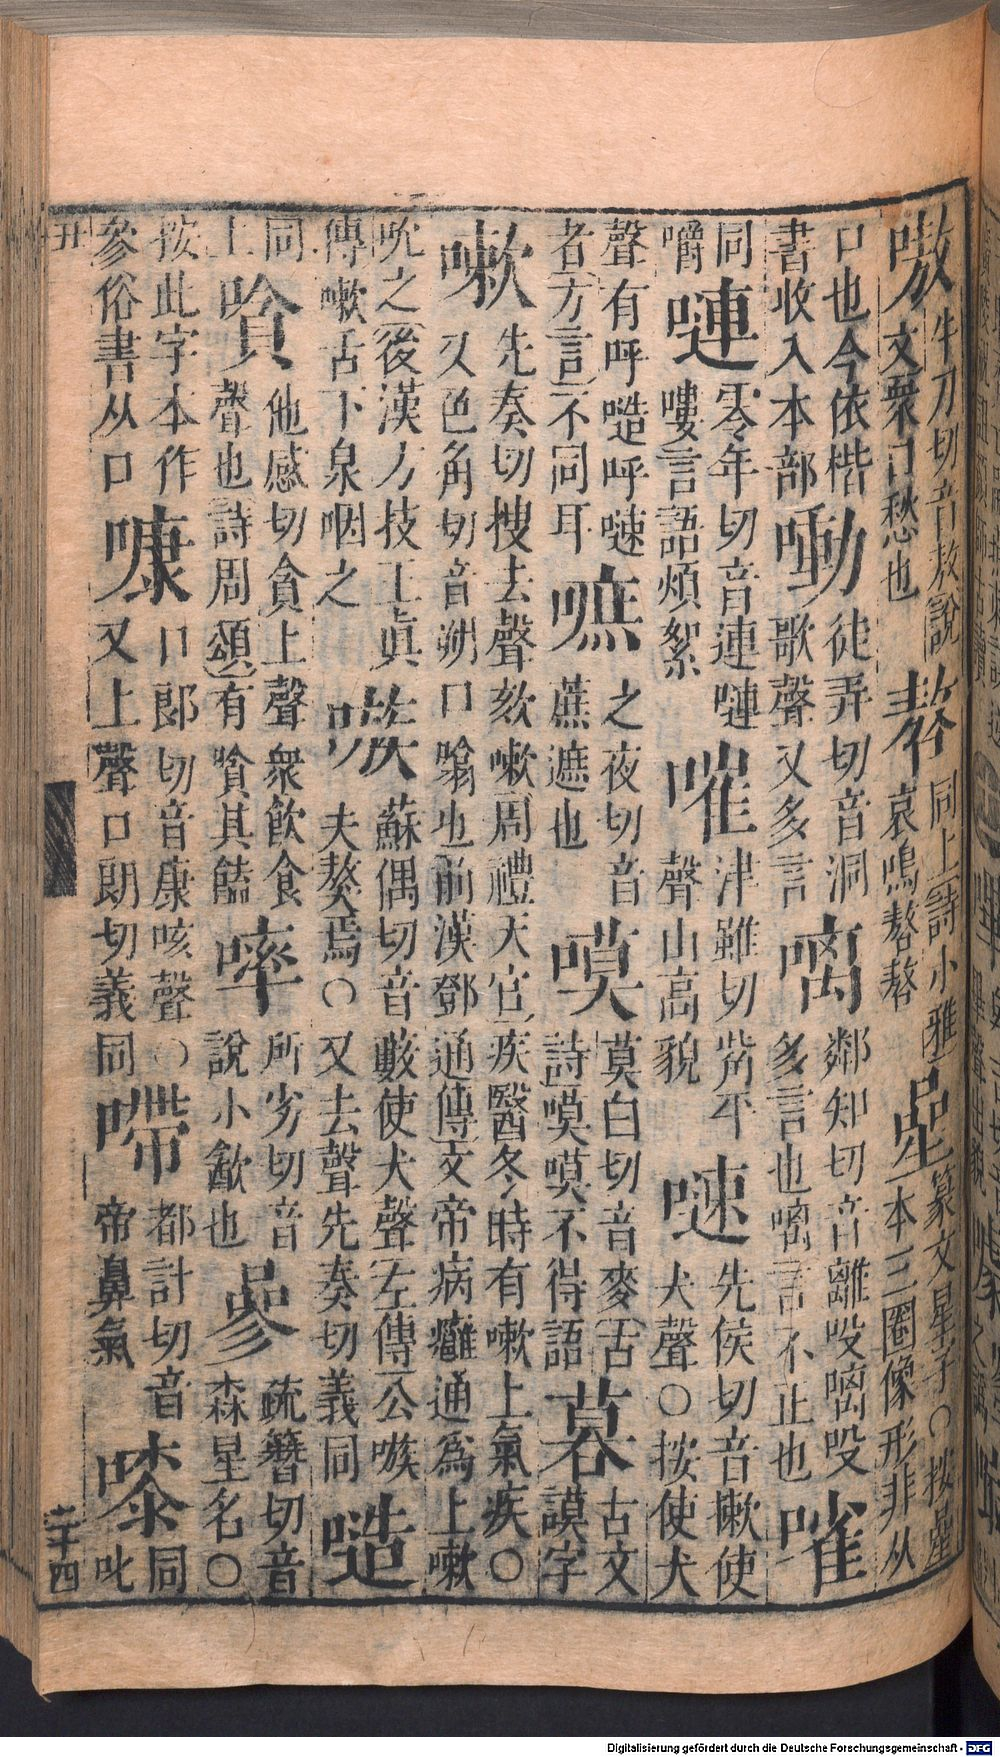 嗷
牛刀切音敖說
文衆口愁也
嗸
同上詩小雅
哀鳴嗸嗸
篆文星字○按星
本三圈像形非从
口也今依楷
書收入本部
徒弄切音洞
歌聲又多言
鄰知切音離吺
多言也言不正也
同
嚼
嗹
零年切音連嗹
嘍言語煩絮
嗺
津雖切觜平
聲山高貌
先侯切音嗽使
犬聲○按使犬
聲有呼呼
者方言不同耳
嗻
之夜切音
蔗遮也
嗼
莫白切音麥舌
詩嗼嗼不得語
古文
謨字
嗽
先奏切搜去聲欬嗽周禮天官疾醫冬時有嗽上氣疾○
又色角切音朔口噏也前漢鄧通傳文帝病癰通爲上嗽
吮之後漢方技王眞
傳嗽舌下泉咽之
嗾
蘇偶切音藪使犬聲左傳公嗾
夫獒焉○又去聲先奏切義同
同
上
嗿
他感切貪上聲衆飲食
聲也詩周頌有嗿其饁
所劣切音
說小歠也
疏簪切音
森星名○
按此字本作
參俗書从口
口郎切音康咳聲○
又上聲口朗切義同
都計切音
帝鼻氣
同
叱
丑
二十四
Digitalisierung gefördert durch die Deutsche Forschungsgemeinschaft - DFG